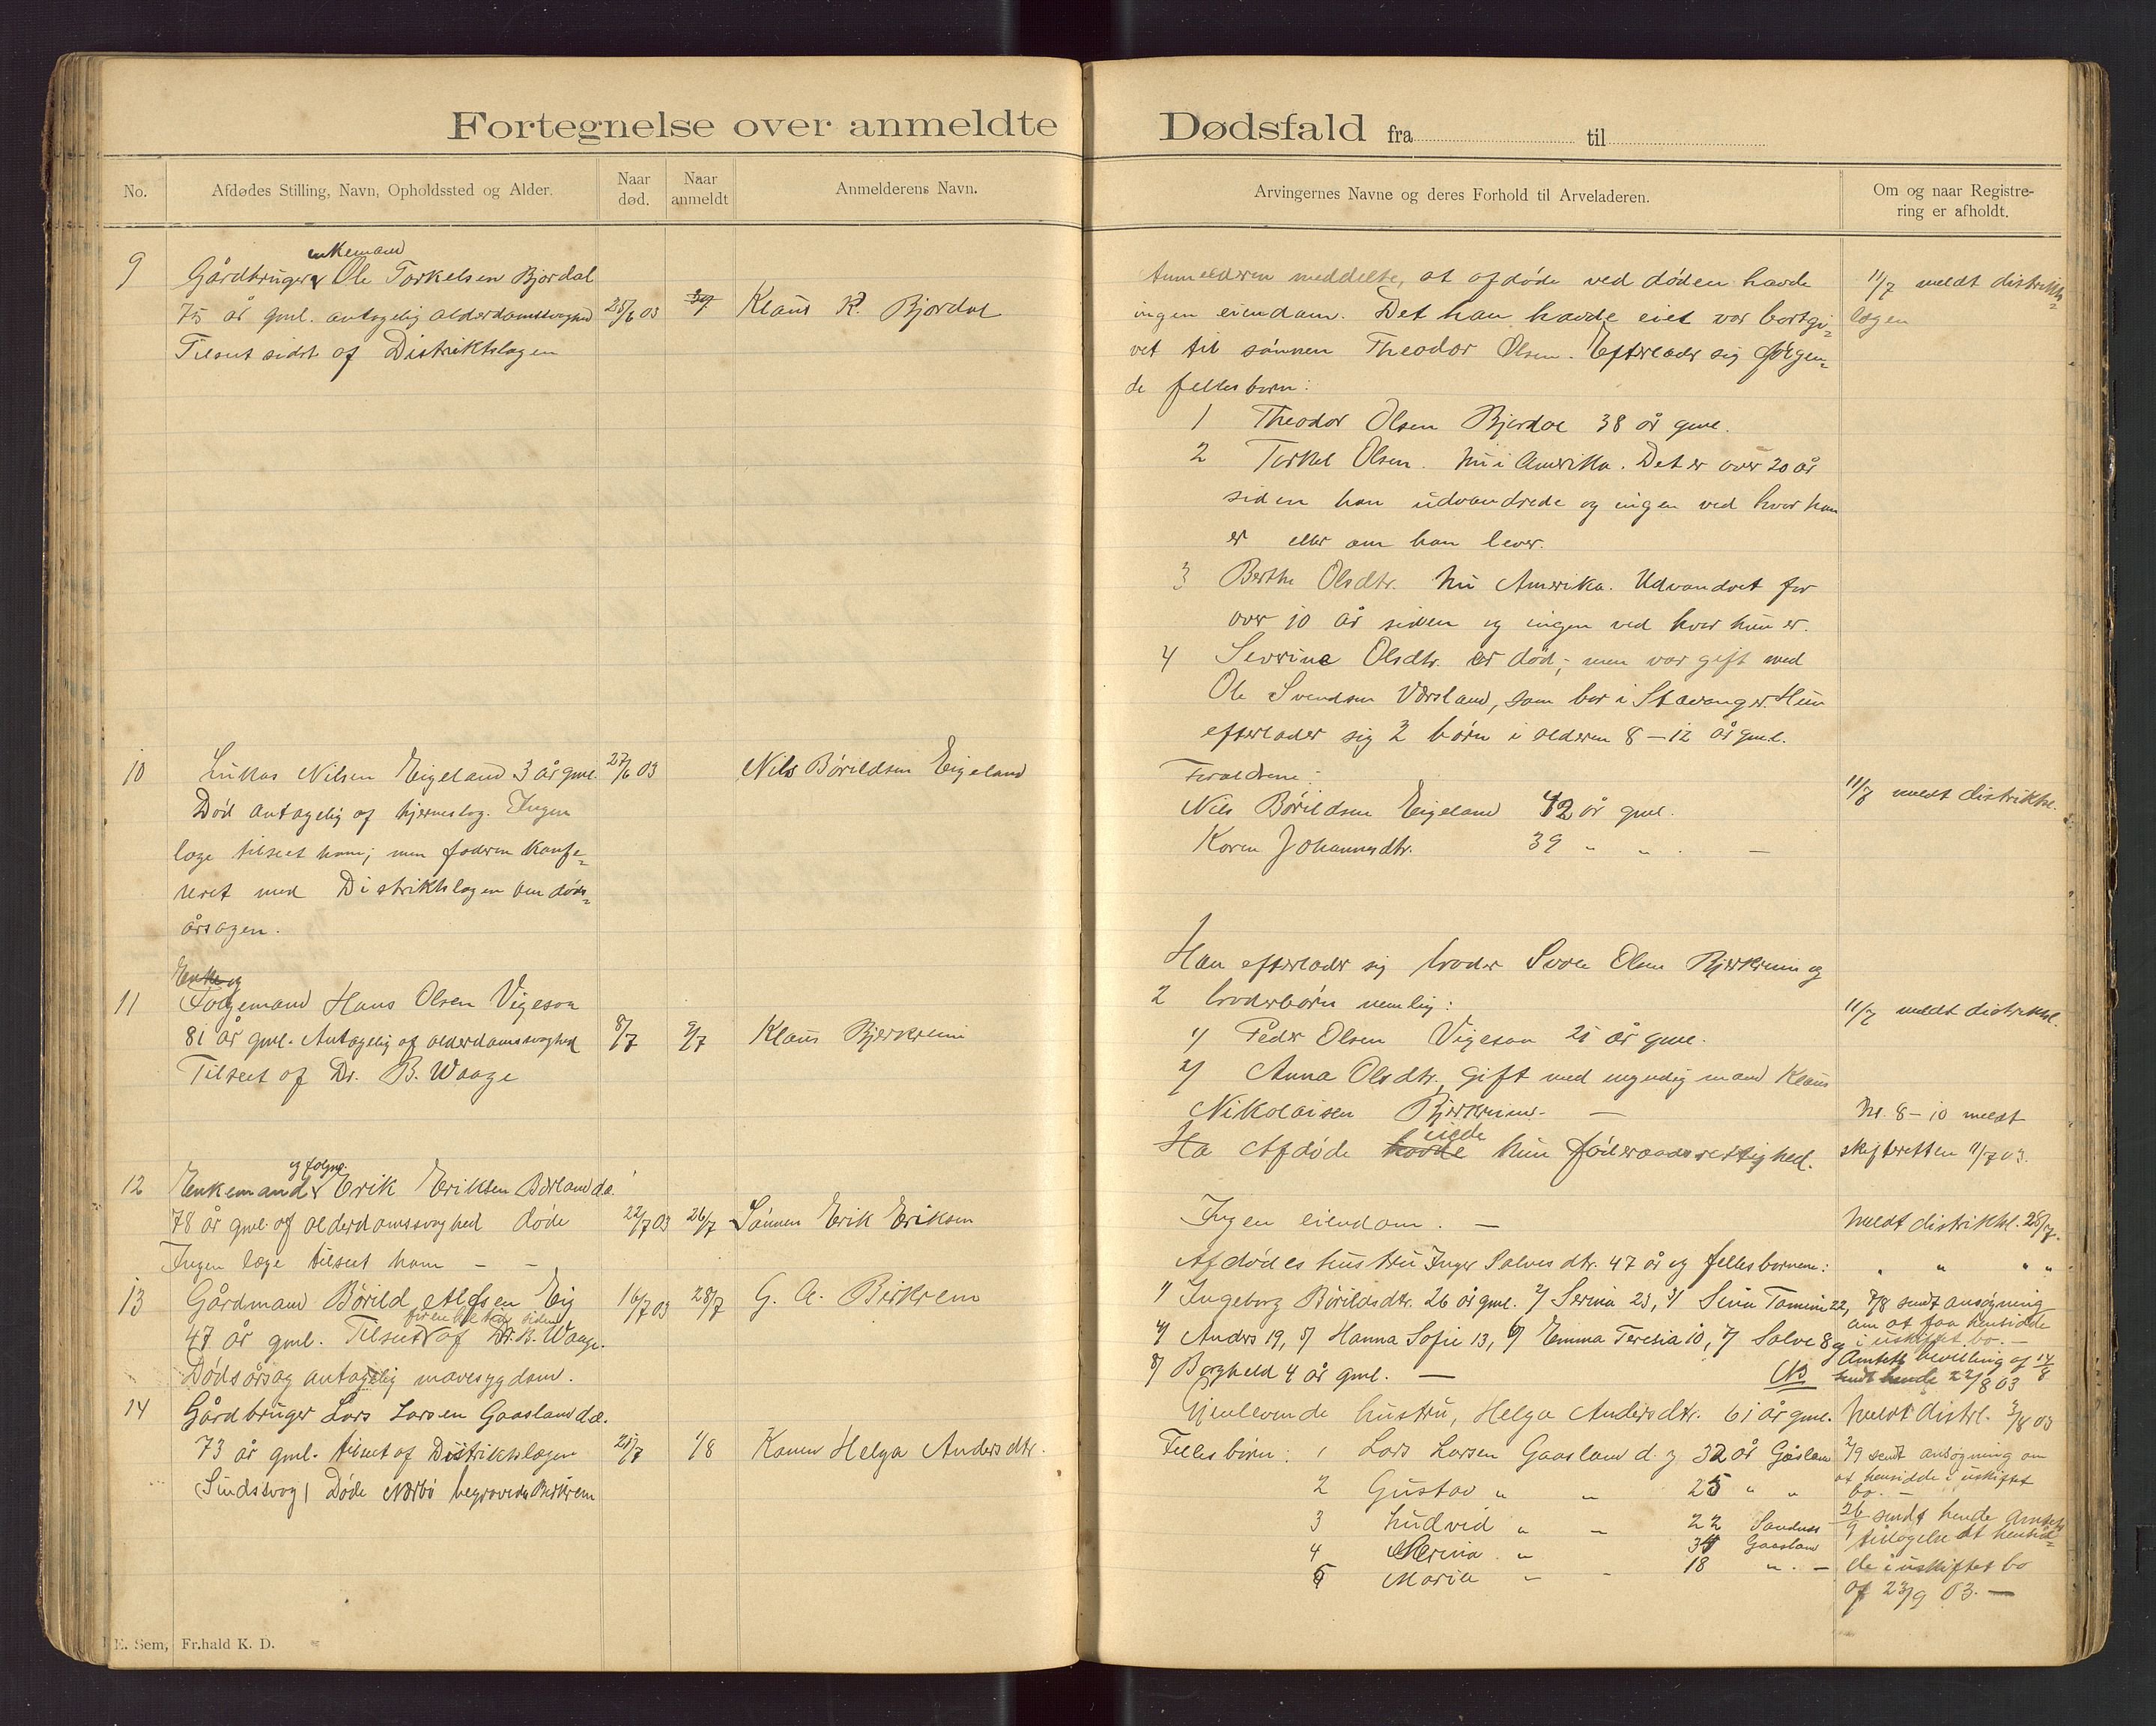 Fortegnelse over anmeldte Dødsfald fra til
No.
Afdødes Stilling, Navn, Opholdssted og Alder.
Naar død.
Naar anmeldt
Anmelderens Navn.
Arvingernes Navne og deres Forhold til Arveladeren.
Om og naar Registre-
ring er afholdt.
enkemand
9 Gårdbruger Ole Torkelsen Bjordal
75 år gml. antagelig alderdomssvaghed 25/6 03 Klaus K. Bjordal
Tilseet sidst af Distriktslægen
Anmelderen meddelte, at afdøde ved døden havde
ingen eiendom. Det han havde eiet var bortgi-
vet til sønnen Theodor Olsen. Efterlader sig følgen-
de fellesbørn:
1 Theodor Olsen Bjordal 38 år gml.
2 Torkel Olsen. Nu i Amerika. Det er over 20 år
siden han udvandrede og ingen ved hvor han
er eller om han lever.
3 Berthe Olsdtr. Nu Amerika. Udvandret for
over 10 år siden og ingen ved hvor hun er.
4 Severine Olsdtr. er død; men var gift med
Ole Svendsen Værsland, som bor i Stavanger. Hun
efterlader sig 2 børn i alderen 8-12 år gml.
11/7 meldt distrikts-
lægen
10 Lukas Nilsen Eigeland 3 år gml. 27/6 03 Nils Børildsen Eigeland
Død antagelig af hjerneslag. Ingen
læge tilseet ham; men faderen konfe-
reret med Distriktslægen om døds-
årsagen.
Foraldrene:
Nils Børildsen Eigeland 42 år gml.
Karen Johannesdtr. 39 " "
11/7 meldt distriktsl.
Enke og
11 Folgemand Hans Olsen Vigesaa
81 år gml. Antagelig af alderdomssvaghed 8/7 9/7 Klaus Bjerkreim
Tilseet af Dr. B. Waage
Han efterlader sig broder Svale Olsen Bjerkreim og
2 broderbørn nemlig:
1/ Peder Olsen Vigesaa 21 år gml.
2/ Anna Olsdtr. gift med myndig mand Klaus
Nikolaisen Bjerkreim. —
eiede
Ha Afdøde havde kun føderaadsrettighed.
11/7 meldt distriktsl.
Nr. 8-10 meldt
skifteretten 11/7 03.
og folgm.
12 Enkemand Erik Eriksen Bærland d.æ.
78 år gml. af alderdomssvaghed døde 22/7 03 26/7 Sønnen Erik Eriksen
Ingen læge tilseet ham — —
Ingen eiendom. —
Meldt distriktsl. 28/7.
13 Gårdmand Børild Alfsen Eig 16/7 03 28/7 G. A. Birkrem
47 år gml. Tilseet af Dr. B. Waage.
Dødsårsag antagelig mavesygdom.
Afdødes hustru Inger Salvesdtr. 47 år og fellesbørnene:
1/ Ingeborg Børildsdtr. 26 år gml. 2/ Serina 23, 3/ Sina Tomine 22,
4/ Anders 19, 5/ Hanna Sofie 13, 6/ Emma Teresia 10, 7/ Salve 8 og
8/ Borghild 4 år gml. — NB
" " " "
7/8 sendt ansøgning
om at faa hensidde
i uskiftet bo. —
Amtets bevilling af 14/8
sendt hende 22/8 03
14 Gårdbruger Lars Larsen Gaasland d.æ.
73 år gml. tilseet af Distriktslægen 25/7 1/8 Konen Helga Andersdtr.
Sindssvag | Døde Nærbø begravedes Birkrem
Gjenlevende hustru, Helga Andersdtr. 61 år gml.
Fellesbørn: 1 Lars Larsen Gaasland d.y. 32 år Gåsland
2 Gustav " " 25 " "
3 Ludvid " " 22 Sandnes
4 Serina " 34 Gaasland
5 Maria " " 18 " —
Meldt distrl. 3/8 03
2/9 sendt ansøgning om
at hensidde i uskiftet
bo. —
26/9 sendt hende Amtets
tilladelse at hensid-
de i uskiftet bo
af 23/9 03. —
E. Sem, Fr.hald K. D.